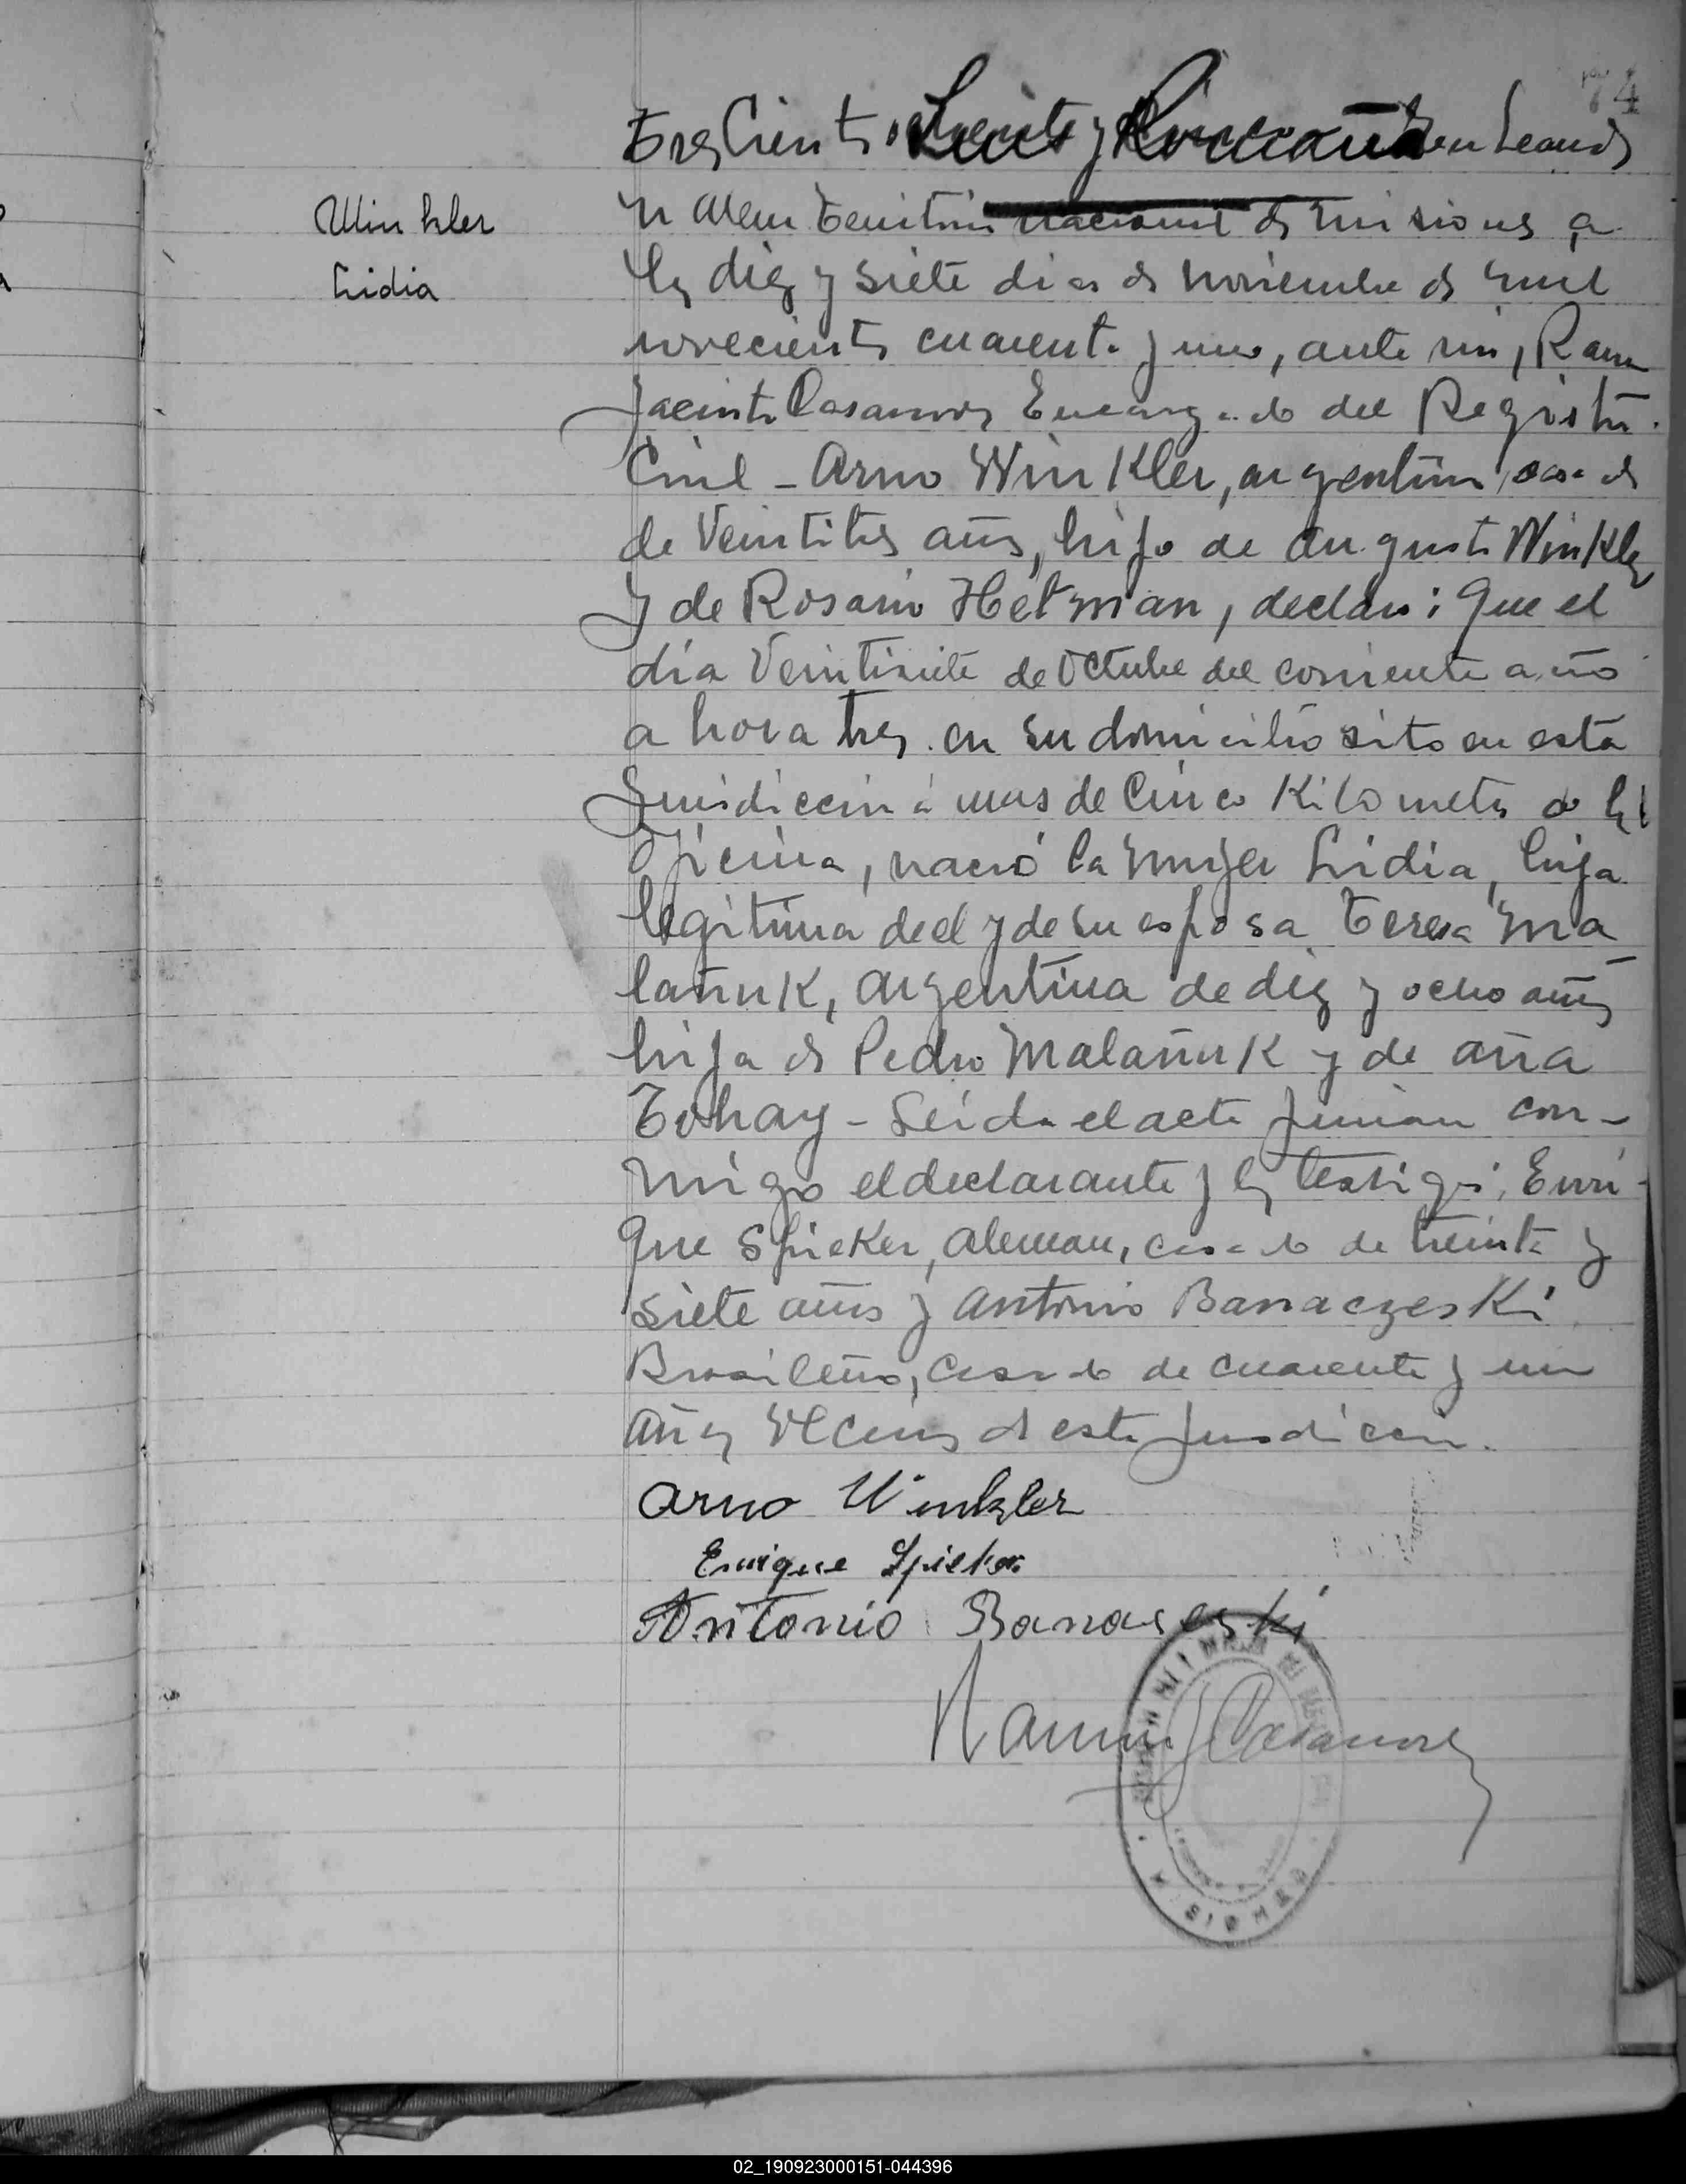 74
Tres Cientos y en Leandro
Winkler
Lidia
N Alem Territorio nacional de Misiones a
los diez y siete dias de noviembre de mil
novecientos cuarenta y uno, ante mi, Ramon
Jacinto Casanova Encargado del Registro
Civil - Arno Winkler, argentino, casado
de Veintitres años, hijo de Augusto Winkler
y de Rosario Hetman, declaró: Que el
día Veintisiete de Octubre del corriente año
a hora tres en su domicilio sito en esta
Jurisdiccion á mas de Cinco Kilometros de la
Oficina, nació la mujer Lidia, hija
legitima de el y de su esposa Teresa Ma
lañuk, Argentina de diez y ocho años
hija de Pedro Malañuk y de Ana
Tohay - Leida el acta firman con-
migo el declarante y los testigos, Enri-
que Spieker, Aleman, casado de treinta y
siete años y Antonio Banaczeski
Brasileño, casado de cuarenta y un
años vecinos de esta jurisdiccion.
Arno Winkler
Enrique Spieker
Antonio Banaseski
Ramon J Casanova
MISIONES
02_190923000151-044396